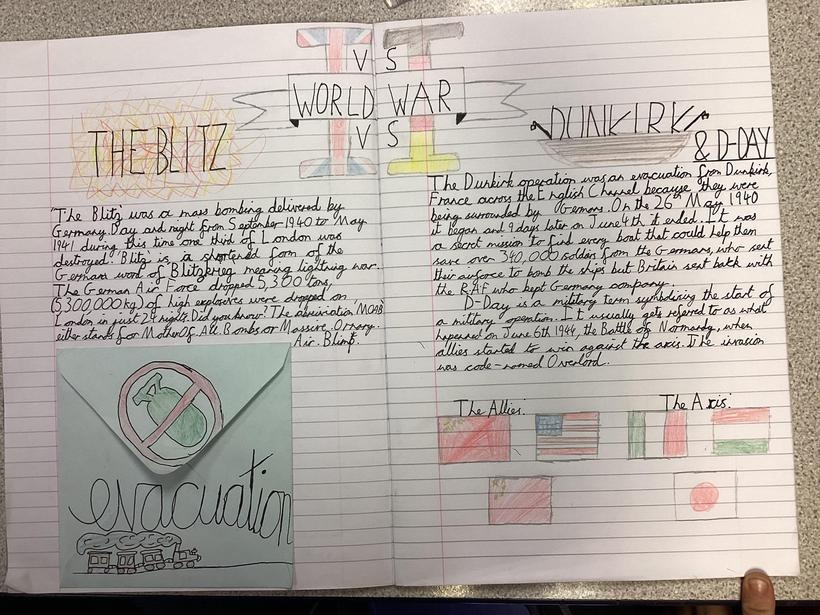 V S
WORLD WAR
V S
THE BLITZ
'The Blitz' was a mass bombing delivered by
Germany. Day and night from September 1940 to May
1941 during this time one third of London was
destroyed. 'Blitz' is a shortened form of the
German word of Blitzkrieg meaning lightning war.
The German Air Force dropped 5,300 tons,
(5,300,000kg) of high explosives were dropped on
London in just 24 nights. Did you know? The abriviation MOAB
either stands for Mother Of All Bombs or Massive. Ornary.
Air. Blimp.
evacuation
DUNKIRK
& D-DAY
The Dunkirk operation was an evacuation from Dunkirk,
France across the English Channel because they were
being surrounded by Germans. On the 26th May 1940
it began and 9 days later on June 4th it ended. It was
a secret mission to find every boat that could help them
save over 340,000 soldiers from the Germans, who sent
their airforce to bomb the ships but Britain sent back with
the RAF who kept Germany company...
D-Day is a military term symbolizing the start of
a military operation. It usually gets referred to as what
happened on June 6th 1944, the Battle of Normandy, when
allies started to win against the axis. The invasion
was code-named Overlord.
The Allies:
The Axis: